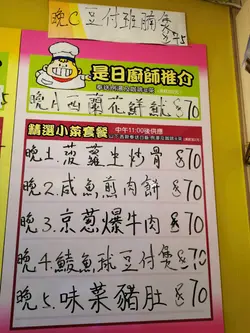 晚C豆付班腩煲 $75
是日廚師推介
奉送例湯及咖啡或茶
晚A西蘭花鮮魷 $70
精選小菜套餐 中午11:00後供應
晚1.菠蘿生炒骨 $70
晚2.咸魚煎肉餅 $70
晚3.京葱爆牛肉 $70
晚4.鯪魚球豆付煲 $70
晚5.味菜豬肚 $70